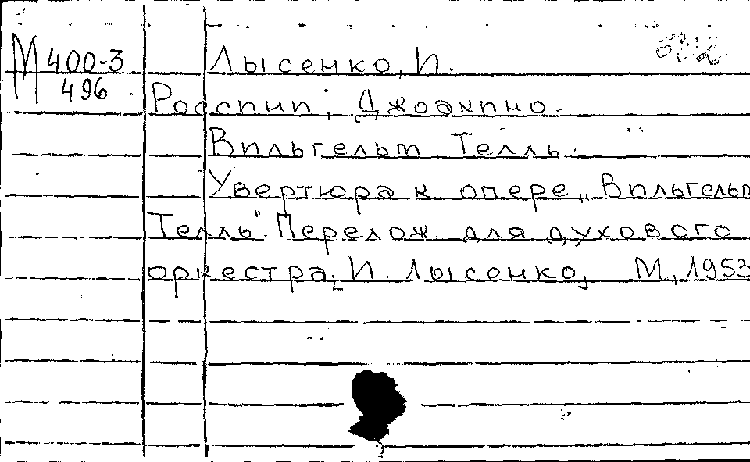 М 400-3 Лысенко, И.
496
Россини, Джоаккино.
Вильгельм Телль.
Увертюра к опере „Вильгельм
Телль". Перелож. для духового
оркестра И. Лысенко, М., 1953